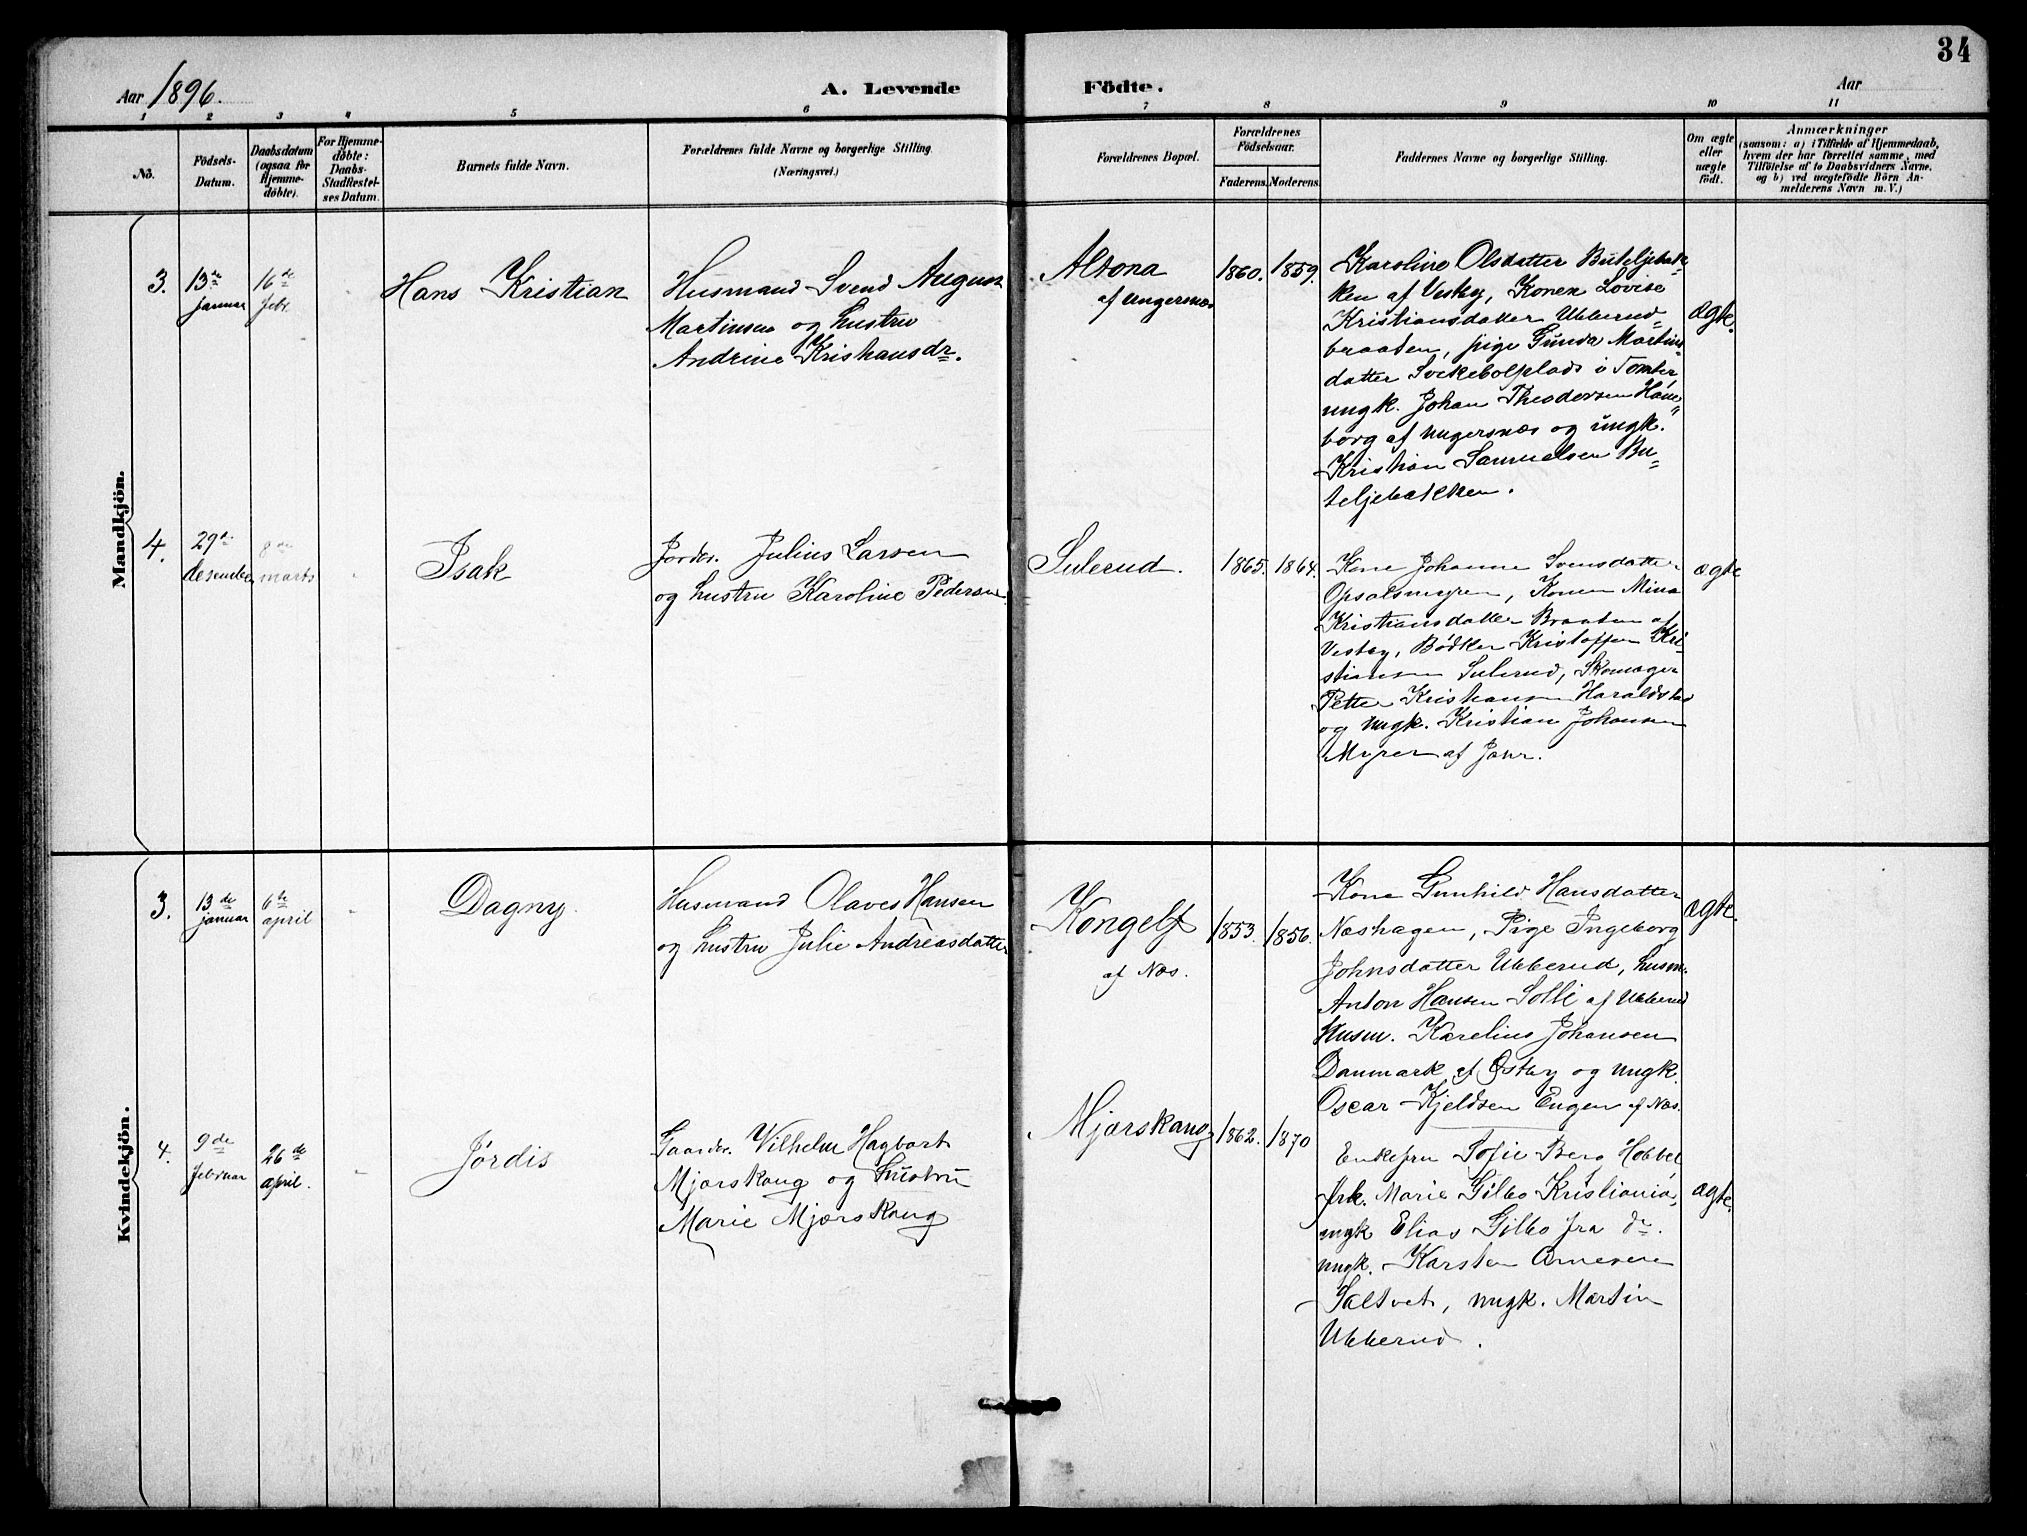 34
Aar 1896.
A. Levende Födte.
Aar
1 2 3 4 5 6 7 8 9 10 11
No.
Födsels-
Datum.
Daabsdatum
(ogsaa for
Hjemme-
döbte).
For Hjemme-
döbte:
Daabs-
Stadfæstel-
ses Datum.
Barnets fulde Navn.
Forældrenes fulde Navne og borgerlige Stilling.
(Næringsvei.)
Forældrenes Bopæl.
Forældrenes
Födselsaar.
Faderens. Moderens.
Faddernes Navne og borgerlige Stilling.
Om ægte
eller
uægte
födt.
Anmærkninger
(saasom: a) i Tilfælde af Hjemmedaab,
hvem der har forrettet samme, med
Tilföielse af to Daabsvidners Navne,
og b) ved uægtefödte Börn An-
melderens Navn m. V.)
Mandkjön.
3.
13de
januar
16de
febr.
Hans Kristian
Husmand Svend August
Martinsen og hustru
Andrine Kristiansdr.
Altona
af Ungersnæs
1860. 1859.
Karoline Olsdatter Buteljebak-
ken af Vestby, Konen Lovise
Kristiansdatter Ubberud-
braaten, pige Gunda Martins-
datter i Tomter,
ungk. Johan Theodorsen Haae-
borg af Ungersnæs og ungk.
Kristian Samuelsen Bu-
teljebakken.
ægte.
4.
29de
desember
8de
marts
Isak
Jordbr. Julius Larsen
og hustru Karoline Pedersen
Sulerud.
1865. 1864.
Kone Johanne Svensdatter
Opsalsmyren, Konen Mina
Kristiansdatter Braaten af
Vestby, Bödker Kristoffer Kri-
stiansen Sulerud, Skomager
Petter Kristiansen Haraldstad
og ungk. Kristian Johansen
Myrer af Jahr.
ægte
Kvindekjön.
3.
13de
januar
6te
april
Dagny.
Husmand Olaves Hansen
og hustru Julie Andreasdatter
Kongelf
af Næs.
1853. 1856.
Kone Gunhild Hansdatter
Næshagen, Pige Ingeborg
Johnsdatter Ubberud, husm.
Anton Hansen Solli af Ubberud
Husm. Karelius Johansen
Danmark af Østby og ungk.
Oscar Kjeldsen Engen af Næs.
ægte.
4.
9de
februar
26de
april.
Jørdis
Gaardbr. Vilhelm Hagbart
Mjærskaug og hustru
Marie Mjærskaug
Mjærskaug
1862. 1870
Enkefru Sofie Berg Hobbel
frk. Marie Gilbo Kristiania,
ungk Elias Gilbo fra do.
ungk. Karsten Arnesen
Saltvet, ungk. Martin
Ubberud.
ægte.